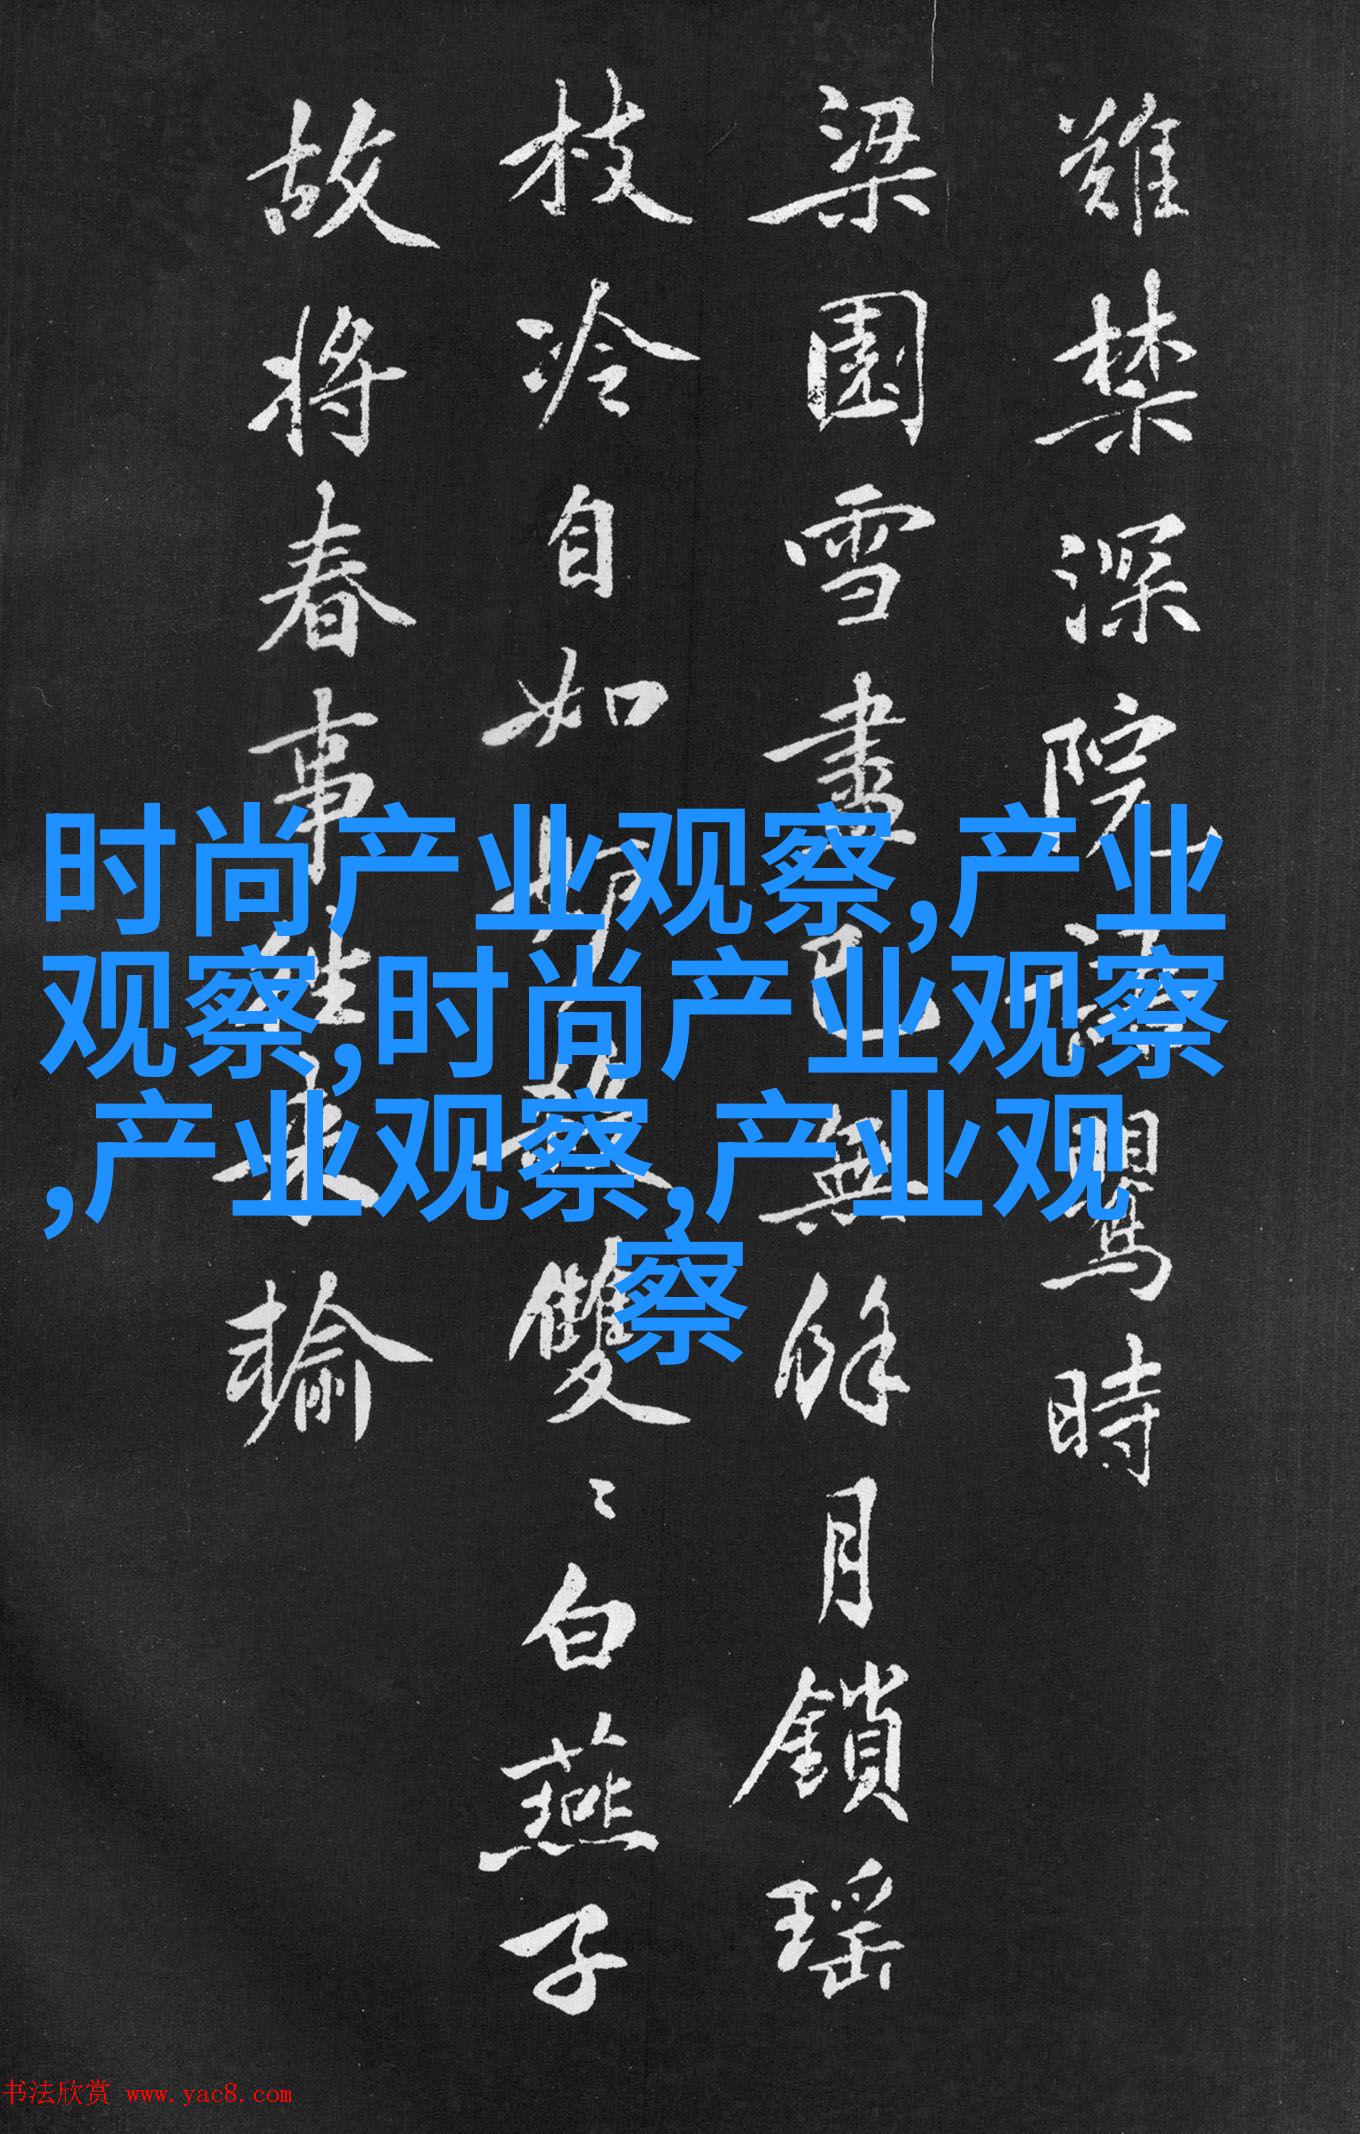 難禁深院鸎時
梁園雪盡已無餘月鎖瑤
枝冷自如雙〻白燕子
故將春事往來輸
时尚产业观察,产业
观察,时尚产业观察
,产业观察,产业观
察
书法欣赏 www.yac8.com